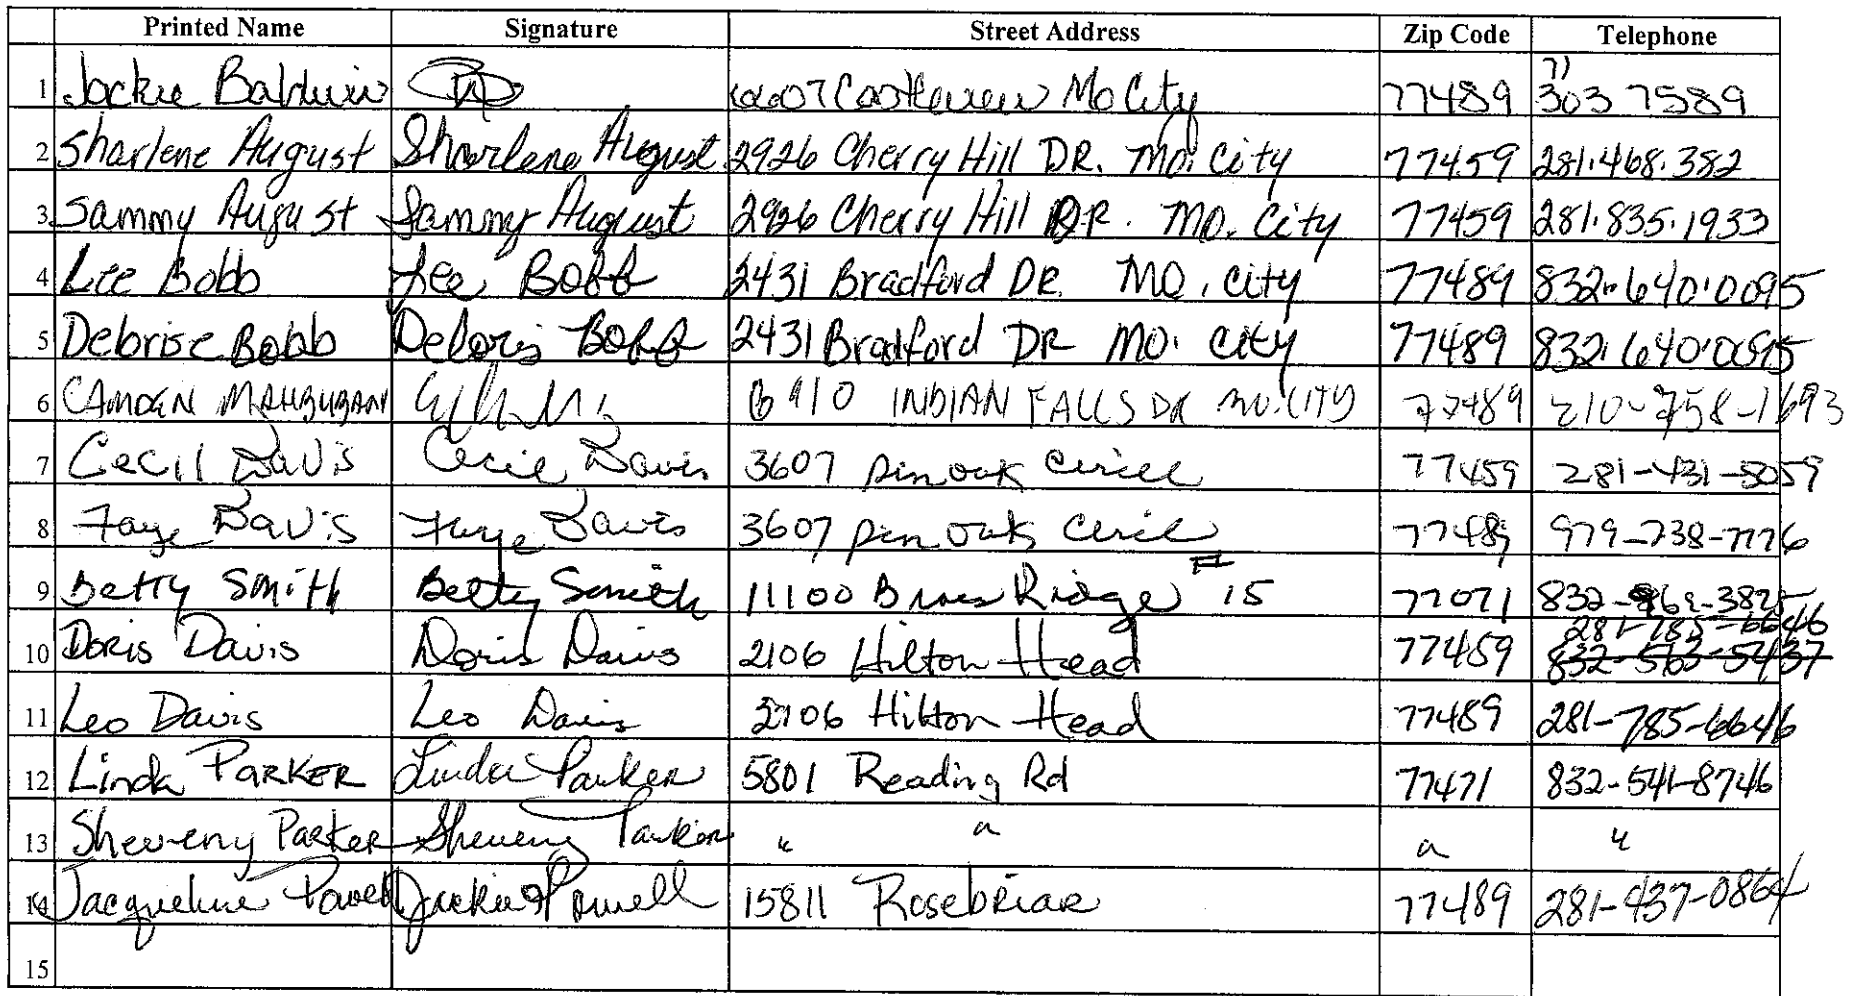 Printed Name Signature Street Address Zip Code Telephone
1 Jackie Baldwin Mo City 77489 71) 303 7589
2 Sharlene August Sharlene August 2926 Cherry Hill DR. Mo. City 77459 281.468.382
3 Sammy August Sammy August 2926 Cherry Hill DR. MO. City 77459 281.835.1933
4 Lee Bobb Lee Bobb 2431 Bradford DR. MO. City 77489 832.640.0095
5 Bobb Deloris Bobb 2431 Bradford DR MO. City 77489 832.640.0095
6 CAMDEN 6910 INDIAN FALLS DR MO. CITY 77489 210-758-1693
7 Cecil Davis Cecil Davis 3607 pin oak 77459 281-431-5059
8 Faye Davis Faye Davis 3607 pin oak 77489 979-738-7776
9 Betty Smith Betty Smith 11100 Ridge # 15 77071
10 Doris Davis Doris Davis 2106 Hilton Head 77459 281-785-6646 832-563-5437
11 Leo Davis Leo Davis 2106 Hilton Head 77489 281-785-6646
12 Linda PARKER Linda Parker 5801 Reading Rd 77471 832-541-8746
13 Sheveny Parker Sheveny Parker " " " "
14 Jacqueline Powell Jackie Powell 15811 Rosebriar 77489 281-437-0864
15